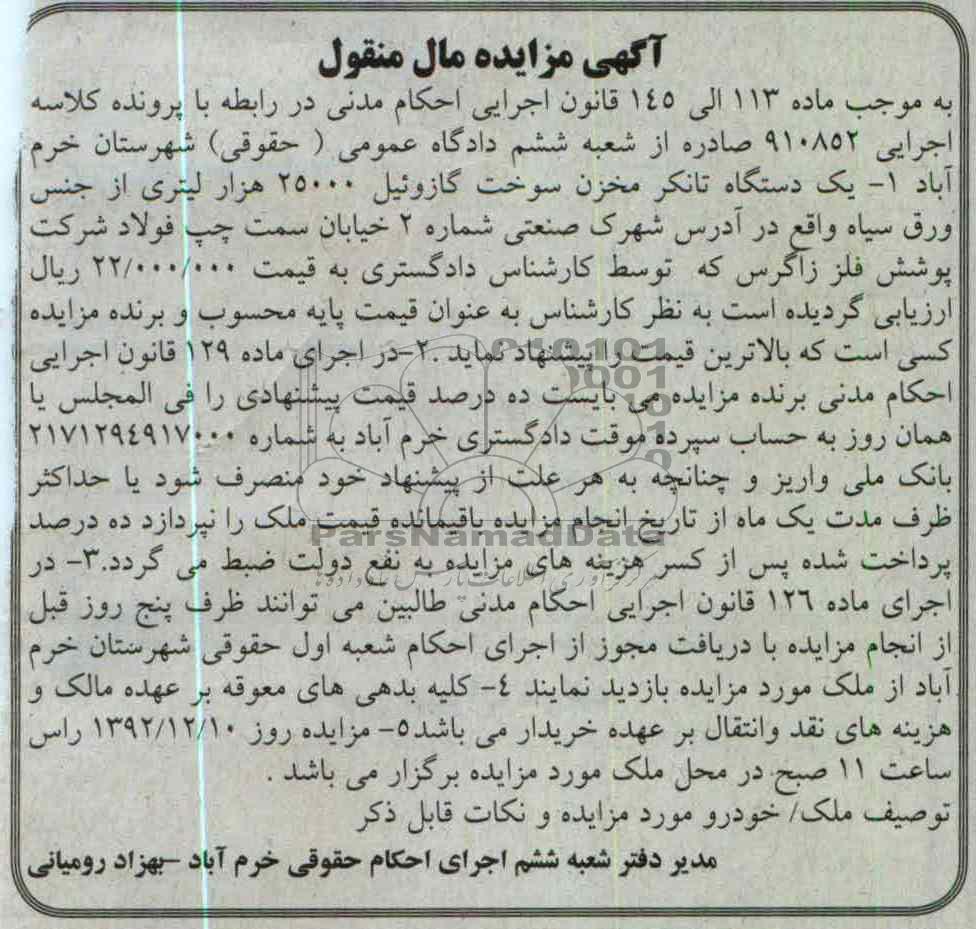 آگهی مزایده مال منقول
به موجب ماده ۱۱۳ الی ۱٤٥ قانون اجرایی احکام مدنی در رابطه با پرونده کلاسه
اجرایی ۹۱۰۸٥۲ صادره از شعبه ششم دادگاه عمومی ( حقوقی) شهرستان خرم
آباد ۱- یک دستگاه تانکر مخزن سوخت گازوئیل ۲٥۰۰۰ هزار لیتری از جنس
ورق سیاه واقع در آدرس شهرک صنعتی شماره ۲ خیابان سمت چپ فولاد شرکت
پوشش فلز زاگرس که توسط کارشناس دادگستری به قیمت ۲۲/۰۰۰/۰۰۰ ریال
ارزیابی گردیده است به نظر کارشناس به عنوان قیمت پایه محسوب و برنده مزایده
کسی است که بالاترین قیمت را پیشنهاد نماید .۲-در اجرای ماده ۱۲۹ قانون اجرایی
احکام مدنی برنده مزایده می بایست ده درصد قیمت پیشنهادی را فی المجلس یا
همان روز به حساب سپرده موقت دادگستری خرم آباد به شماره ۲۱۷۱۲۹٤۹۱۷۰۰۰
بانک ملی واریز و چنانچه به هر علت از پیشنهاد خود منصرف شود یا حداکثر
ظرف مدت یک ماه از تاریخ انجام مزایده باقیمانده قیمت ملک را نپردازد ده درصد
پرداخت شده پس از کسر هزینه های مزایده به نفع دولت ضبط می گردد.۳- در
اجرای ماده ۱۲٦ قانون اجرایی احکام مدنی طالبین می توانند ظرف پنج روز قبل
از انجام مزایده با دریافت مجوز از اجرای احکام شعبه اول حقوقی شهرستان خرم
آباد از ملک مورد مزایده بازدید نمایند ٤- کلیه بدهی های معوقه بر عهده مالک و
هزینه های نقد وانتقال بر عهده خریدار می باشد٥- مزایده روز ۱۳۹۲/۱۲/۱۰ راس
ساعت ۱۱ صبح در محل ملک مورد مزایده برگزار می باشد .
توصیف ملک/ خودرو مورد مزایده و نکات قابل ذکر
مدیر دفتر شعبه ششم اجرای احکام حقوقی خرم آباد –بهزاد رومیانی
ParsNamadData